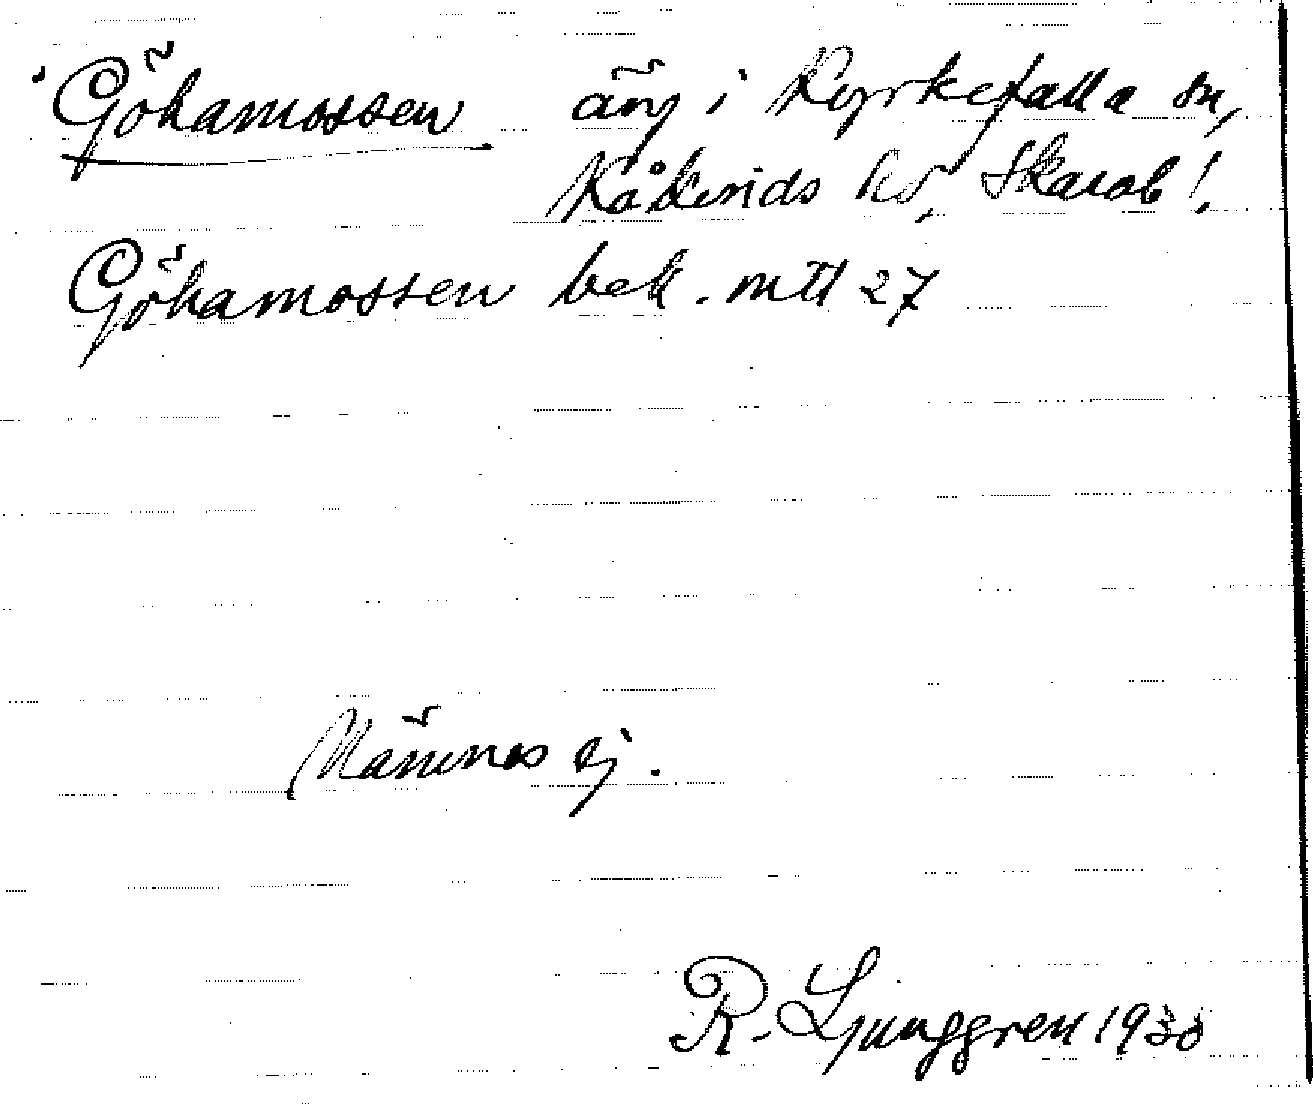 Gökamossen äng i Kyrkefalla sn,
Kåkinds hd, Skarab!
Gökamossen bek. mtl 27
Kännes ej.
R. Ljunggren 1930